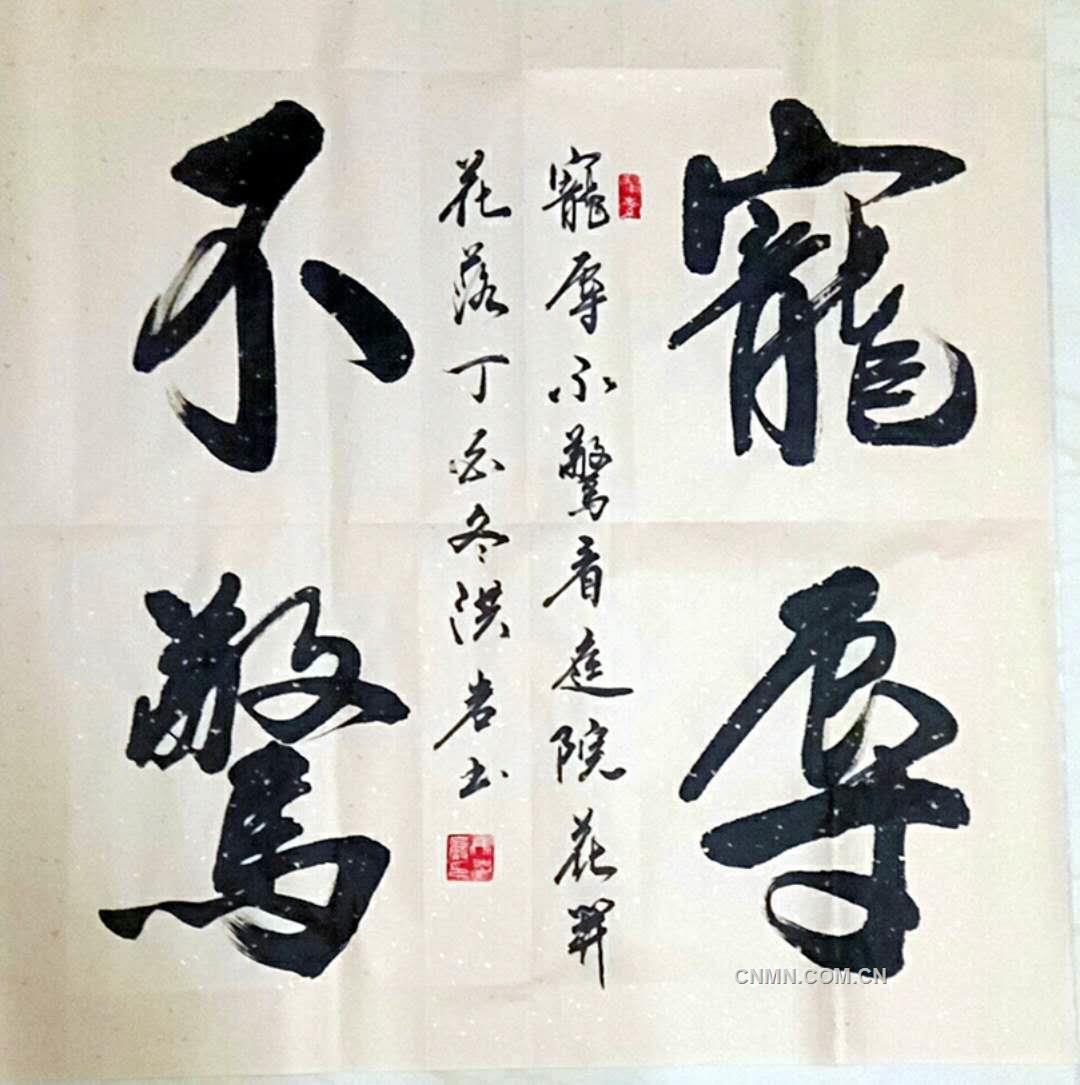 寵辱
寵辱不驚看庭院花開
花落丁酉冬洪岩书
不驚
CNMN.COM.CN